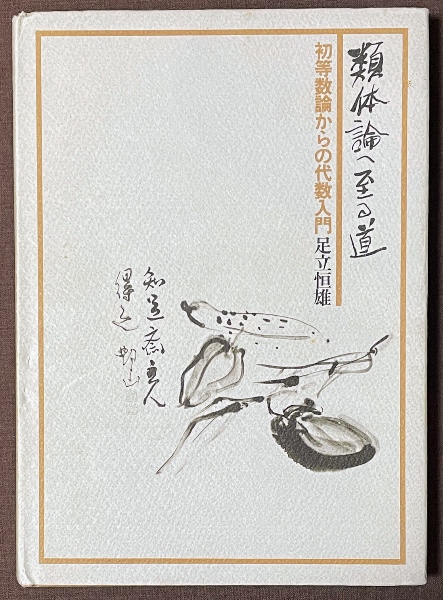 類体論へ至る道
初等数論からの代数入門
足立恒雄
知足斎主人